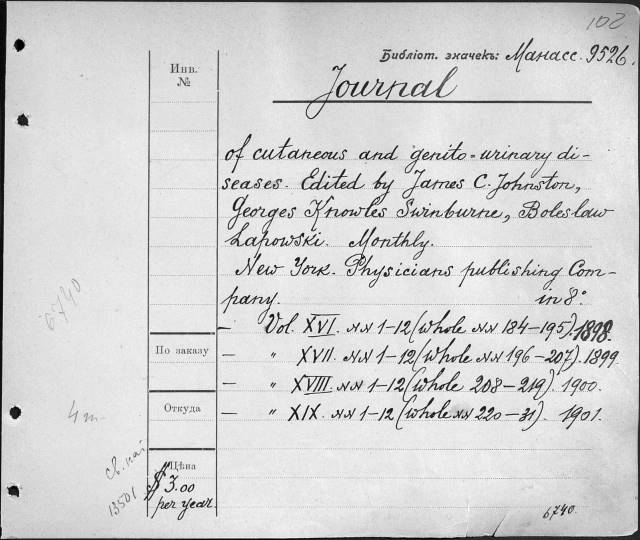 102
Библіот. значекъ: Манасс. 9526.
Инв.
№
Journal
of cutaneous and genito-urinary di-
seases. Edited by James C. Johnston,
Georges Knowles Swinburne, Boleslaw
Lapowski. Monthly.
New York. Physicians publishing Com-
pany. in 8°.
– Vol. XVI. NN 1–12 (whole NN 184–195). 1898.
– " XVII. NN 1–12 (whole NN 196–207). 1899.
– " XVIII. NN 1–12 (whole 208–219). 1900.
– " XIX. NN 1–12 (whole NN 220–31). 1901.
По заказу
Откуда
Цѣна
$ 3.00
per year.
6740
4 т
13501
6740.